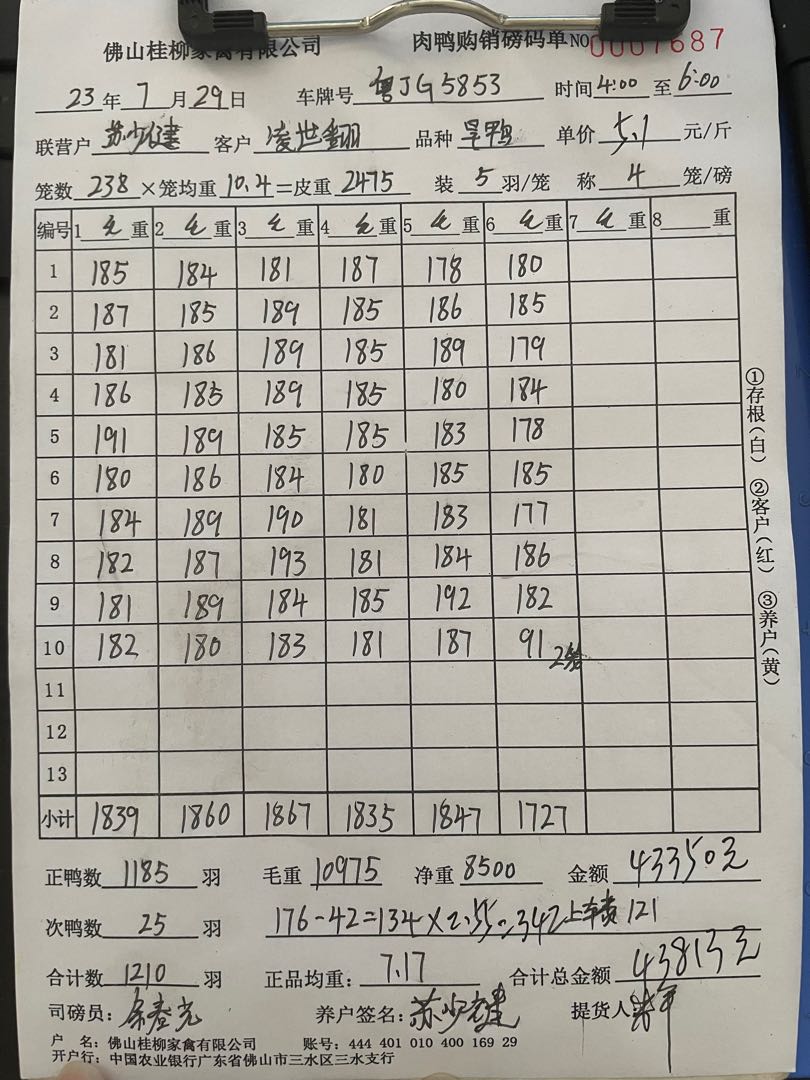 佛山桂柳家禽有限公司 肉鸭购销磅码单 NO 0007687
23年7月29日 车牌号 粤JG5853 时间4:00至6:00
联营户 苏少建 客户 凌世翻 品种 旱鸭 单价 5.1 元/斤
笼数 238 ×笼均重 10.4 =皮重 2475 装 5 羽/笼 称 4 笼/磅
编号 1 毛 重 2 毛 重 3 毛 重 4 毛 重 5 毛 重 6 毛 重 7 毛 重 8 重
1 185 184 181 187 178 180
2 187 185 189 185 186 185
3 181 186 189 185 189 179
4 186 185 189 185 180 184
5 191 189 185 185 183 178
6 180 186 184 180 185 185
7 184 189 190 181 183 177
8 182 187 193 181 184 186
9 181 189 184 185 192 182
10 182 180 183 181 187 91 2笼
11
12
13
小计 1839 1860 1867 1835 1847 1727
①存根(白) ②客户(红) ③养户(黄)
正鸭数 1185 羽 毛重 10975 净重 8500 金额 43350元
次鸭数 25 羽 176-42=134×2.55=342 上车费 121
合计数 1210 羽 正品均重: 7.17 合计总金额 43813元
司磅员: 养户签名: 苏少建 提货人
户 名: 佛山桂柳家禽有限公司 账号: 444 401 010 400 169 29
开户行: 中国农业银行广东省佛山市三水区三水支行